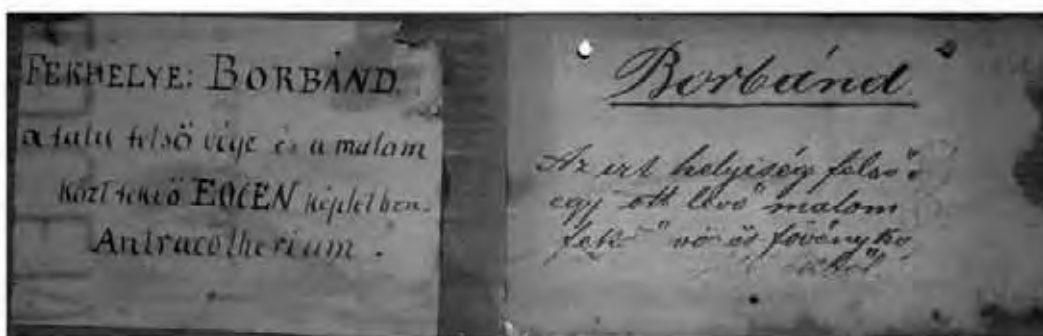 FEKHELYE: BORBÁND.
a falu felső vége és a malom
közt fekvő EOCEN képletben.
Antracotherium.
Borbánd.
Az irt helyiség felső
egy ott lévő malom
fek vö ös fövényko